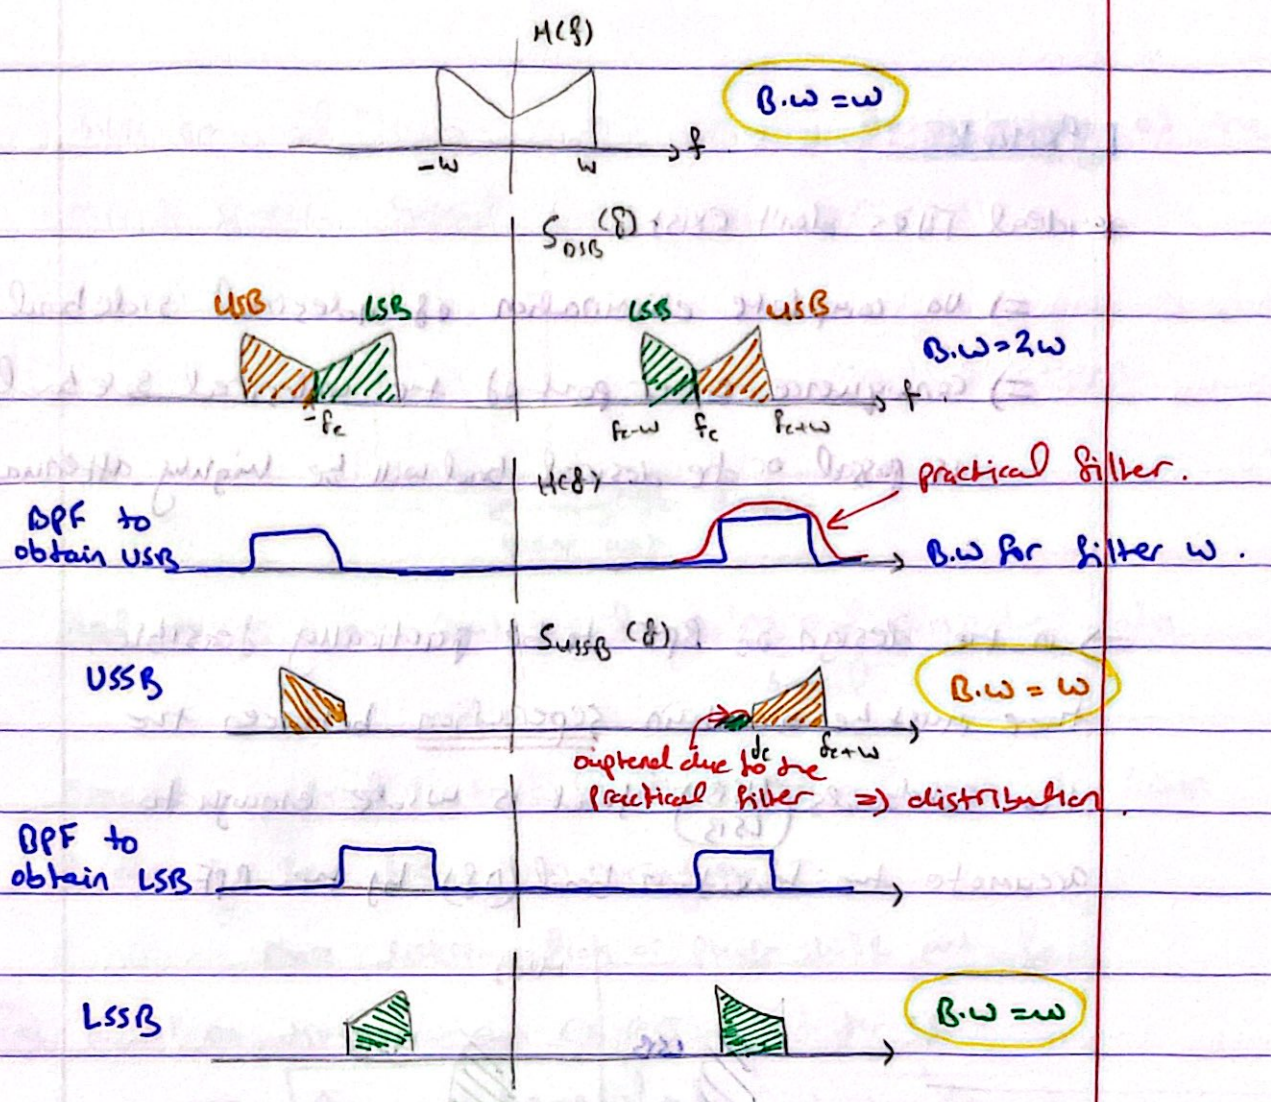 M(f)
B.W = W
-W W f
S_DSB(f)
USB LSB LSB USB
B.W = 2W
-fc fc-W fc fc+W f
H(f)
practical filter.
BPF to
obtain USB
B.W for filter W.
S_USSB(f)
USSB
B.W = W
fc fc+W
due to the
practical filter => distribution.
BPF to
obtain LSB
LSSB
B.W = W